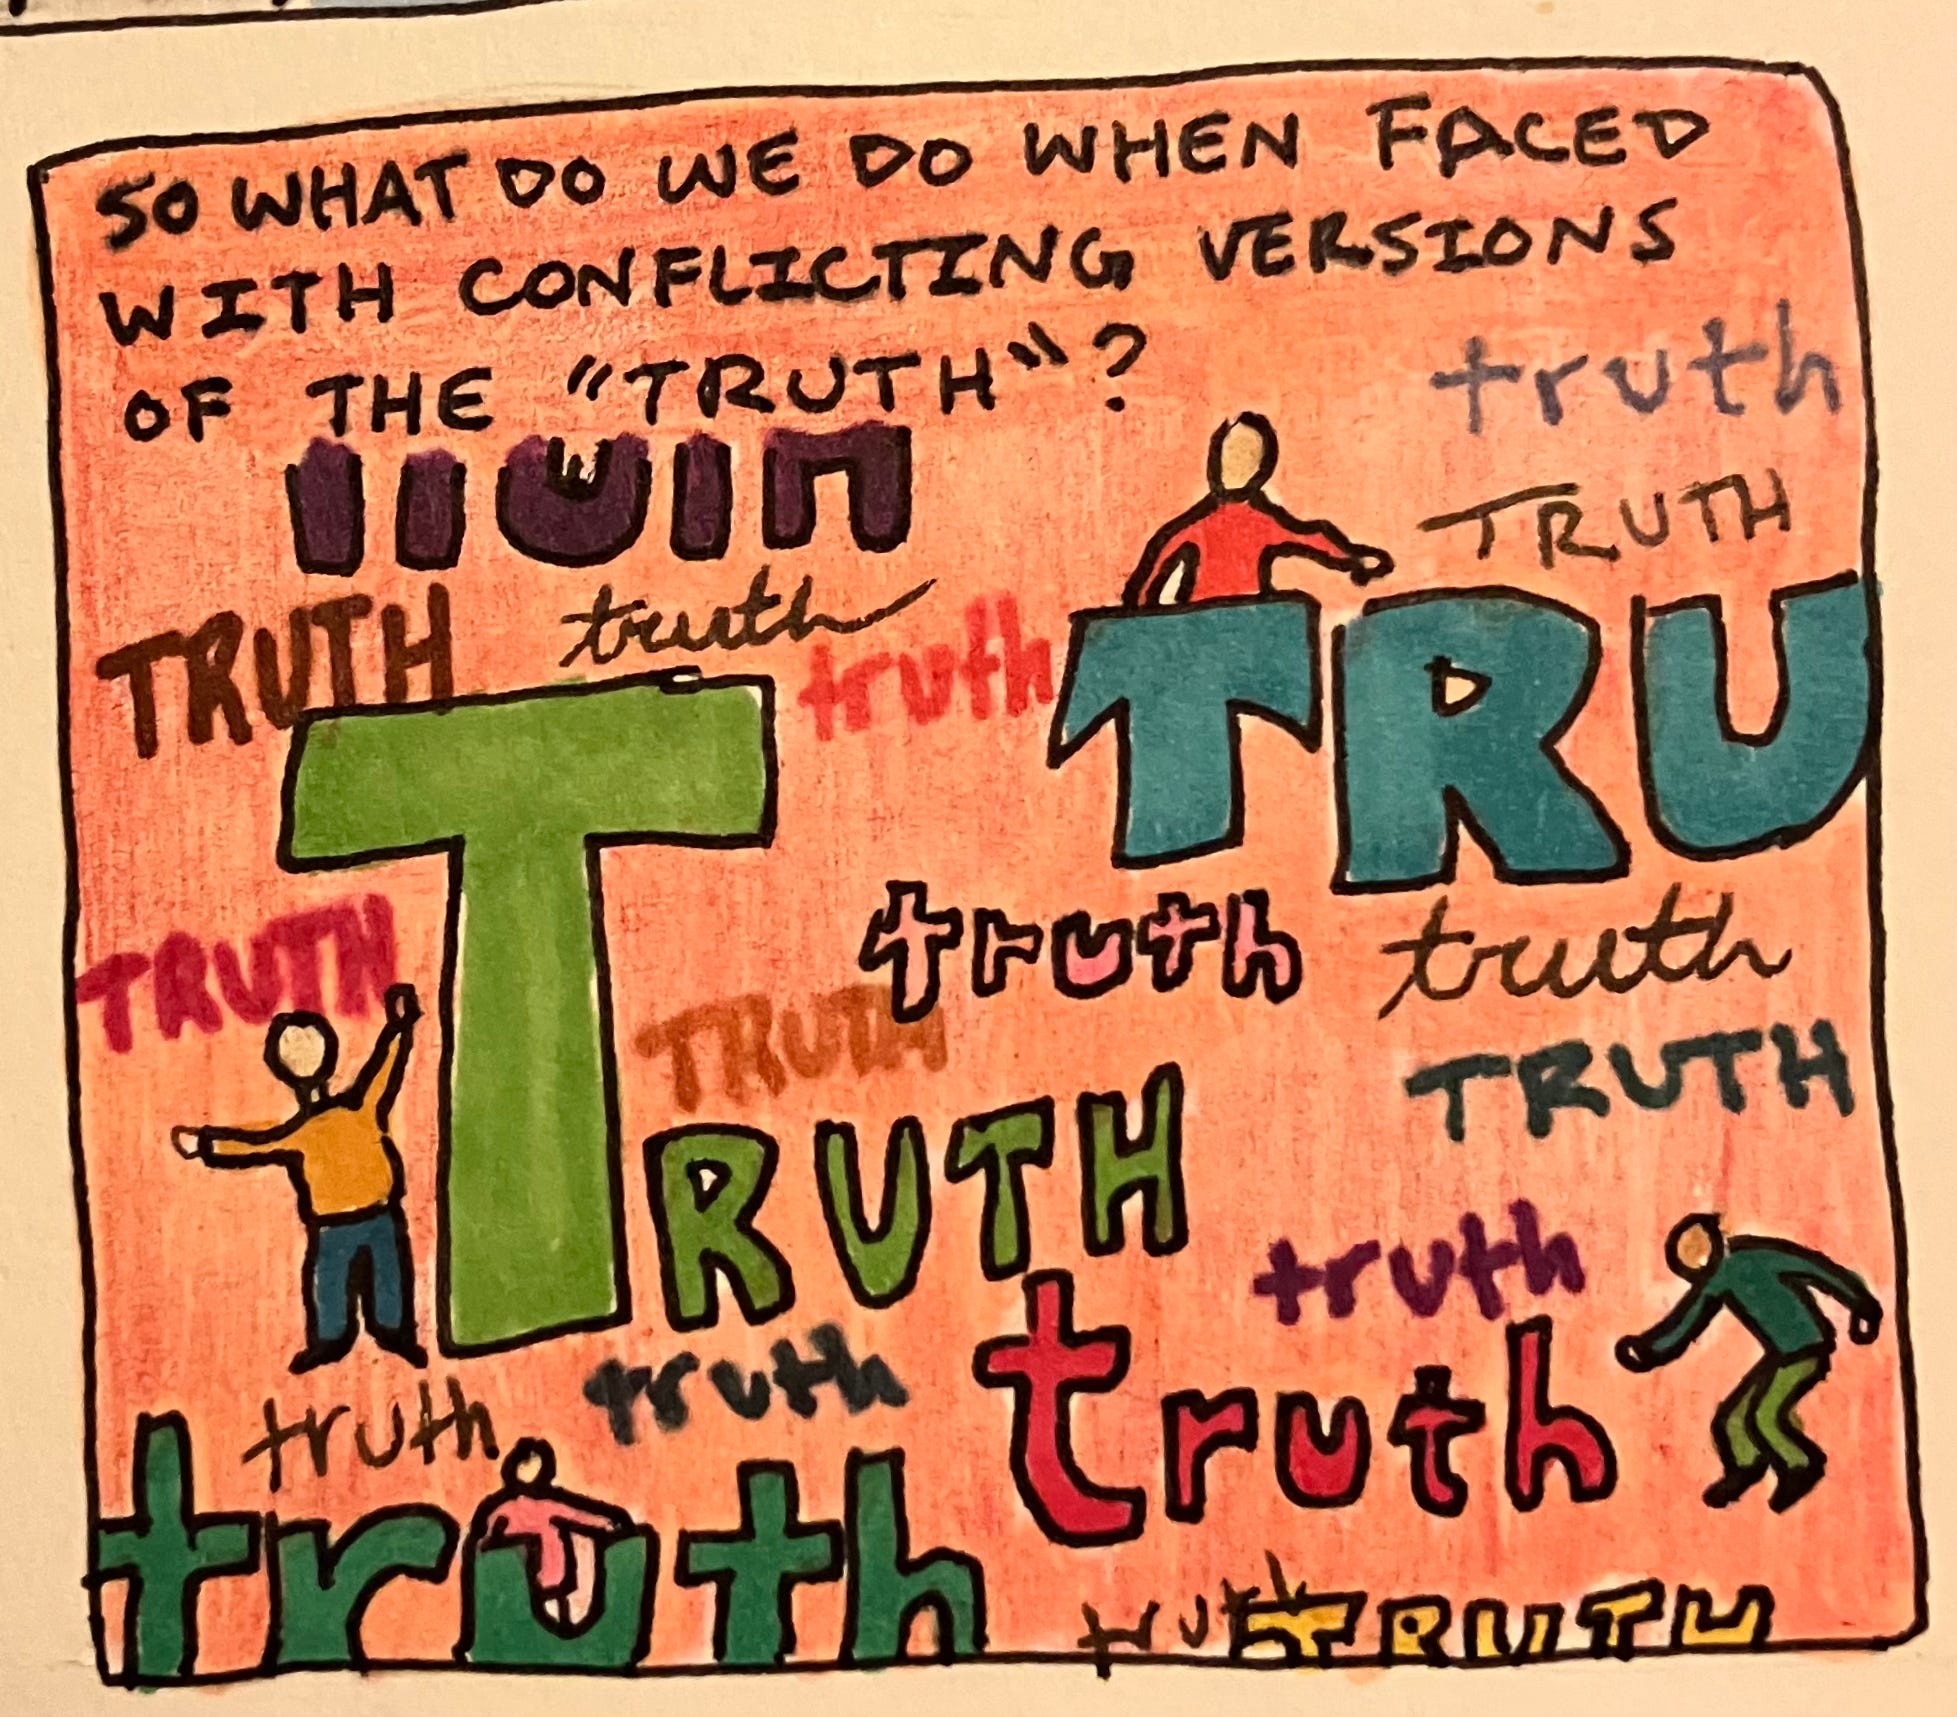 SO WHAT DO WE DO WHEN FACED
WITH CONFLICTING VERSIONS
OF THE "TRUTH"?
truth
TRUTH
TRUTH
truth
truth
TRU
TRUTH
truth
truth
TRUTH
TRUTH
TRUTH
truth
truth
truth
truth
truth
truth
TRUTH